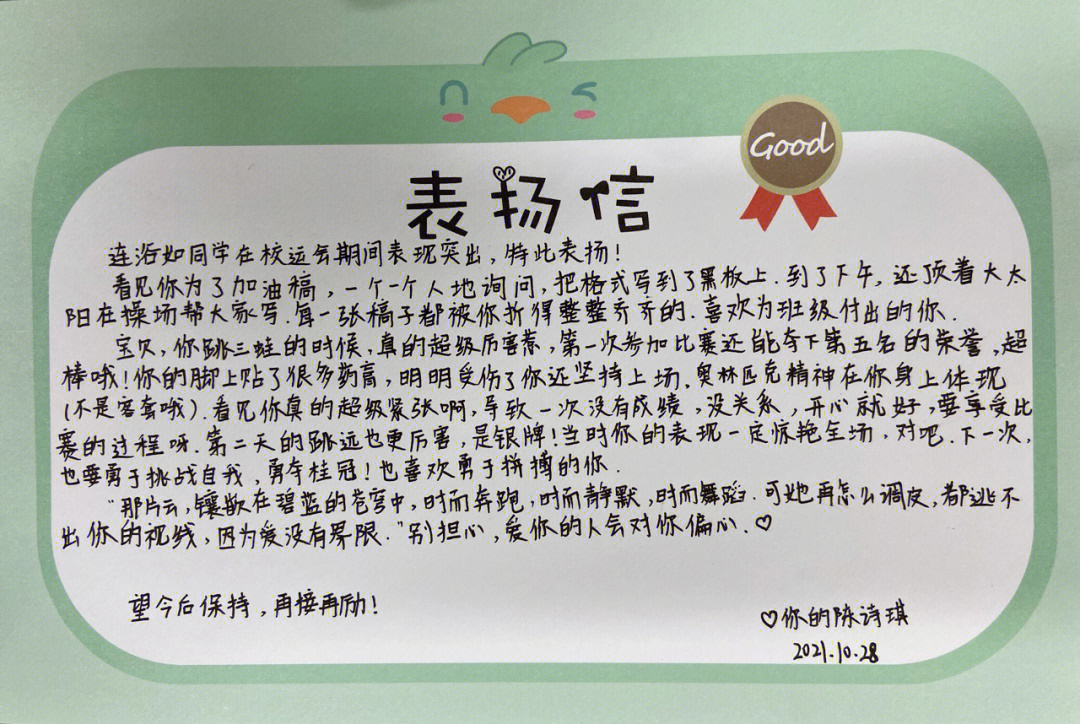 Good
表扬信
连浴如同学在校运会期间表现突出,特此表扬!
看见你为了加油稿,一个一个人地询问,把格式写到了黑板上.到了下午,还顶着大太
阳在操场帮大家写.每一张稿子都被你折得整整齐齐的.喜欢为班级付出的你.
宝贝,你跳三蛙的时候,真的超级厉害惹,第一次参加比赛还能夺下第五名的荣誉,超
棒哦!你的脚上贴了很多药膏,明明受伤了你还坚持上场.奥林匹克精神在你身上体现
(不是客套哦).看见你真的超级紧张啊,导致一次没有成绩,没关系,开心就好,要享受比
赛的过程呀.第二天的跳远也更厉害,是银牌!当时你的表现一定惊艳全场,对吧.下一次,
也要勇于挑战自我,勇夺桂冠!也喜欢勇于拼搏的你.
“那片云,镶嵌在碧蓝的苍穹中,时而奔跑,时而静默,时而舞蹈.可她再怎么调皮,都逃不
出你的视线,因为爱没有界限.”别担心,爱你的人会对你偏心.♡
望今后保持,再接再励!
♡你的陈诗琪
2021.10.28